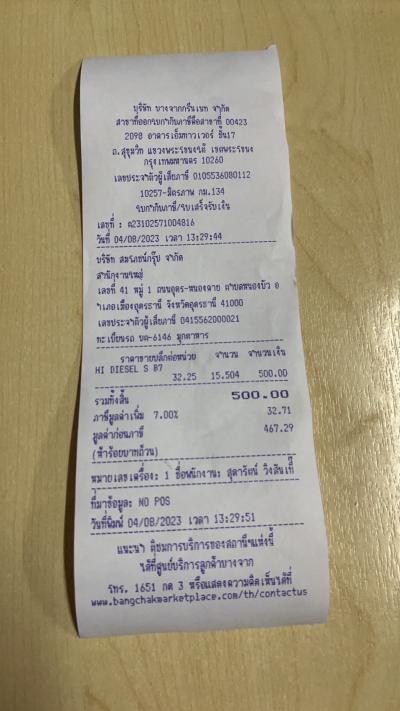 บริษัท บางจากกรีนเนท จำกัด
สาขาที่ออกใบกำกับภาษีคือสาขาที่ 00423
2098 อาคารเอ็มทาวเวอร์ ชั้น17
ถ.สุขุมวิท แขวงพระโขนงใต้ เขตพระโขนง
กรุงเทพมหานคร 10260
เลขประจำตัวผู้เสียภาษี 0105536080112
10257-มิตรภาพ กม.134
ใบกำกับภาษี/ใบเสร็จรับเงิน
เลขที่ : R23102571004816
วันที่ 04/08/2023 เวลา 13:29:44
บริษัท สมรักษ์กรุ๊ป จำกัด
สำนักงานใหญ่
เลขที่ 41 หมู่ 1 ถนนอุดร-หนองคาย ตำบลหนองบัว อ
ำเภอเมืองอุดรธานี จังหวัดอุดรธานี 41000
เลขประจำตัวผู้เสียภาษี 0415562000021
ทะเบียนรถ บต-6146 มุกดาหาร
ราคาขายปลีกต่อหน่วย จำนวน จำนวนเงิน
HI DIESEL S B7
32.25 15.504 500.00
รวมทั้งสิ้น 500.00
ภาษีมูลค่าเพิ่ม 7.00% 32.71
มูลค่าก่อนภาษี 467.29
(ห้าร้อยบาทถ้วน)
หมายเลขเครื่อง: 1 ชื่อพนักงาน: สุดารัตน์
ที่มาข้อมูล: NO POS
วันที่พิมพ์ 04/08/2023 เวลา 13:29:51
แนะนำ ติชมการบริการของสถานีฯแห่งนี้
ได้ที่ศูนย์บริการลูกค้าบางจาก
โทร. 1651 กด 3 หรือแสดงความคิดเห็นได้ที่
www.bangchakmarketplace.com/th/contactus